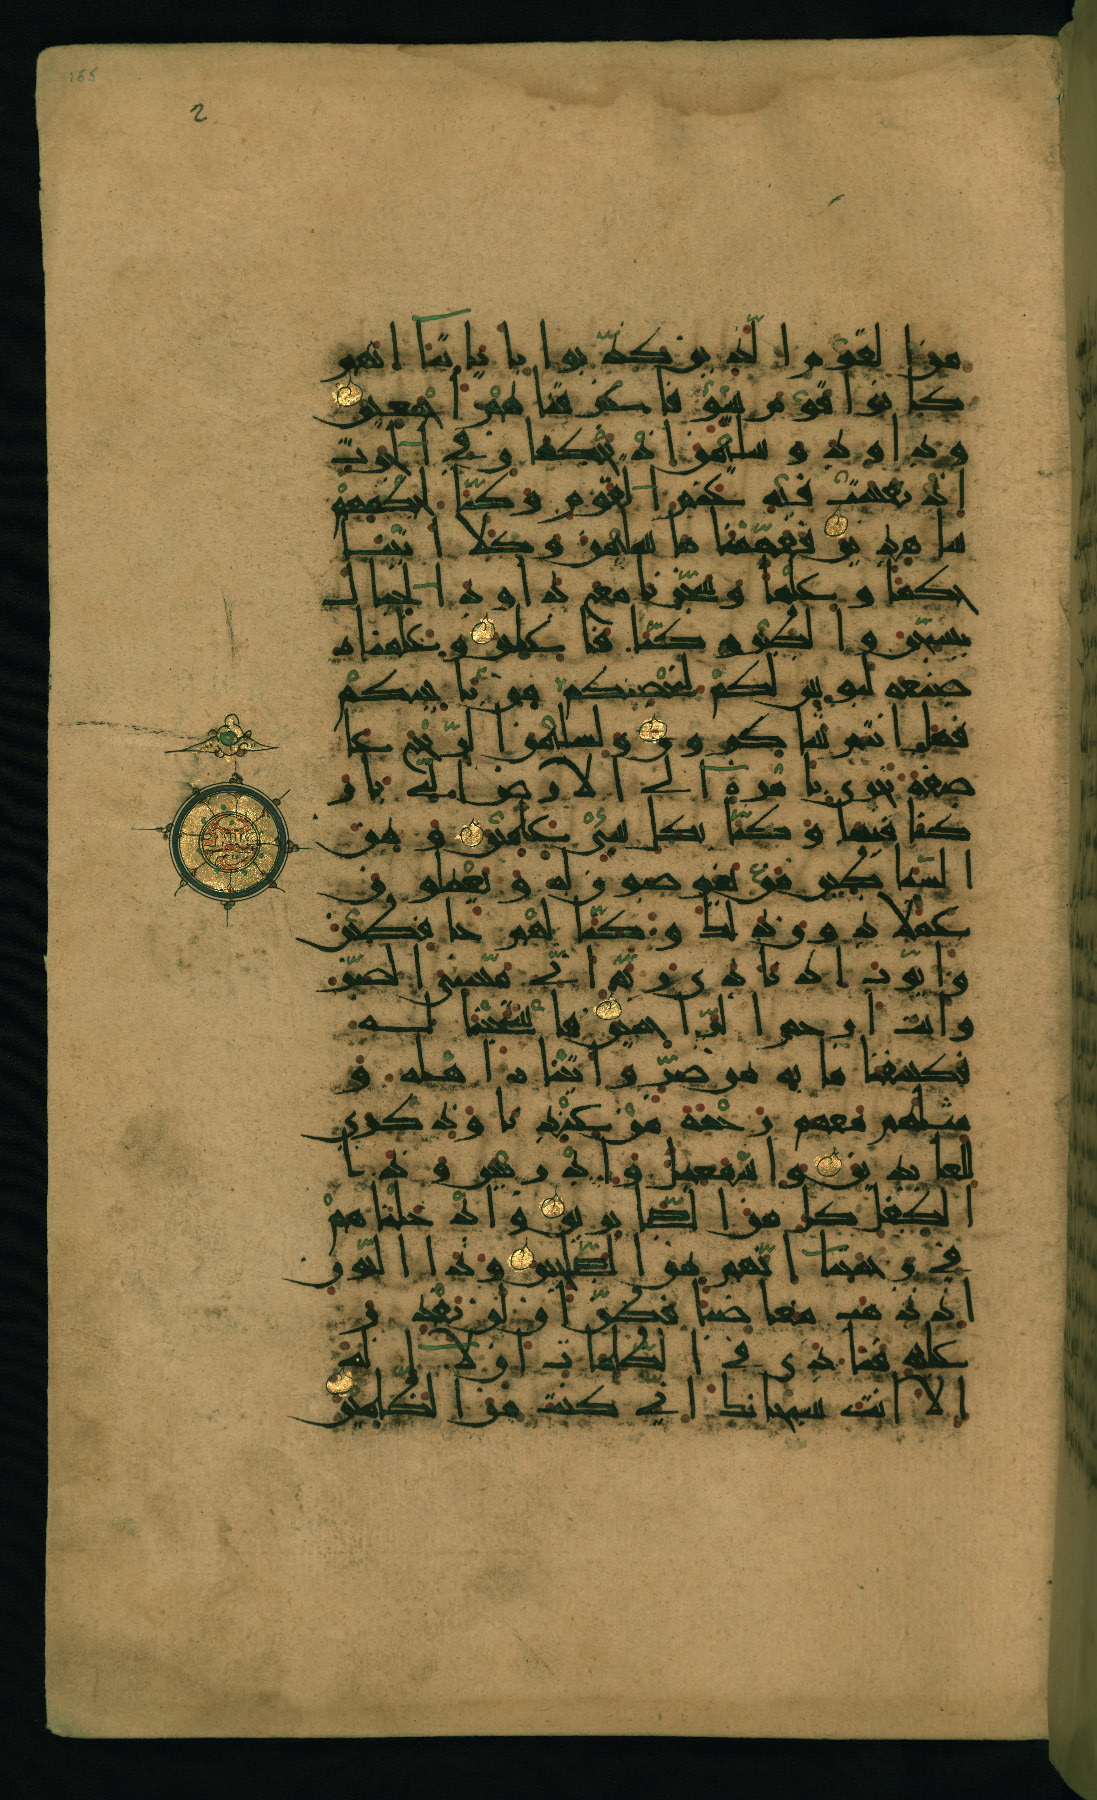 165
2
من القوم الذين كذبوا باياتنا انهم
كانوا قوم سوء فاغرقناهم اجمعين
وداود وسليمن اذ يحكمان في الحرث
اذ نفشت فيه غنم القوم وكنا لحكمهم
شاهدين ففهمنها سليمن وكلا اتينا
حكما وعلما وسخرنا مع داود الجبال
يسبحن والطير وكنا فاعلين وعلمناه
صنعه لبوس لكم لتحصنكم من باسكم
فهل انتم شاكرون ولسليمن الريح عا
صفة تجري بامره الى الارض التي بار
كنا فيها وكنا بكل شيء علمين و من
الشياطين من يغوصون له ويعملون
عملا دون ذلك وكنا لهم حافظين
وايوب اذ نادى ربه اني مسني الضر
وانت ارحم الراحمين فاستجبنا له
فكشفنا ما به من ضر واتيناه اهله و
مثلهم معهم رحمة من عندنا وذكرى
للعابدين واسمعيل وادريس وذا
الكفل كل من الصابرين وادخلناهم
في رحمتنا انهم من الصلحين وذا النون
اذ ذهب مغاضبا فظن ان لن نقدر
عليه فنادى في الظلمات ان لا اله
الا انت سبحانك اني كنت من الظلمين